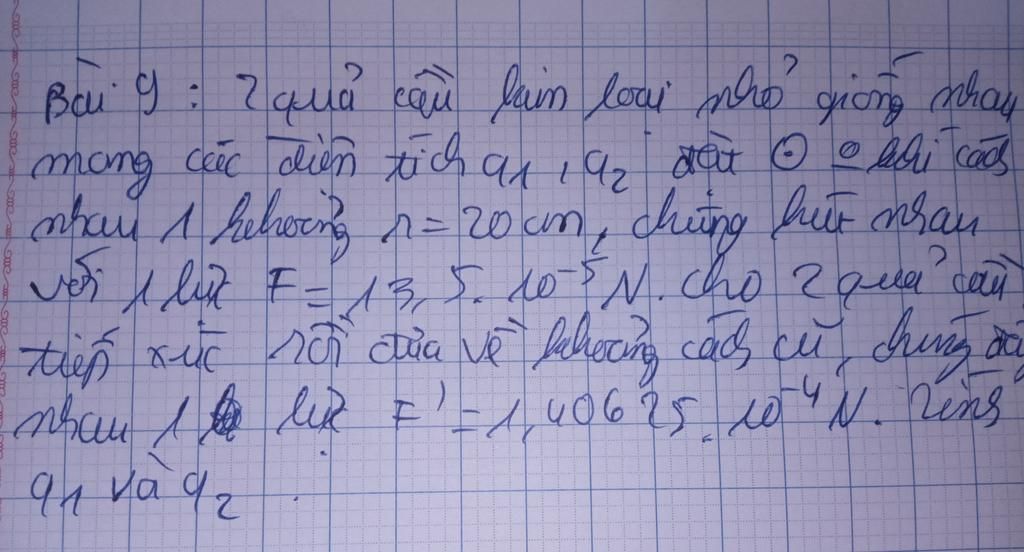 Bài 9 : 2 quả cầu kim loại nhỏ giống nhau
mang các điện tích q1, q2 đặt khí cách
nhau 1 khoảng r = 20 cm, chúng hút nhau
với 1 lực F = 13,5.10^-5 N. Cho 2 quả cầu
tiếp xúc rồi đưa về khoảng cách cũ, chúng đẩy
nhau 1 lực F' = 1,40625.10^-4 N. Tính
q1 và q2.